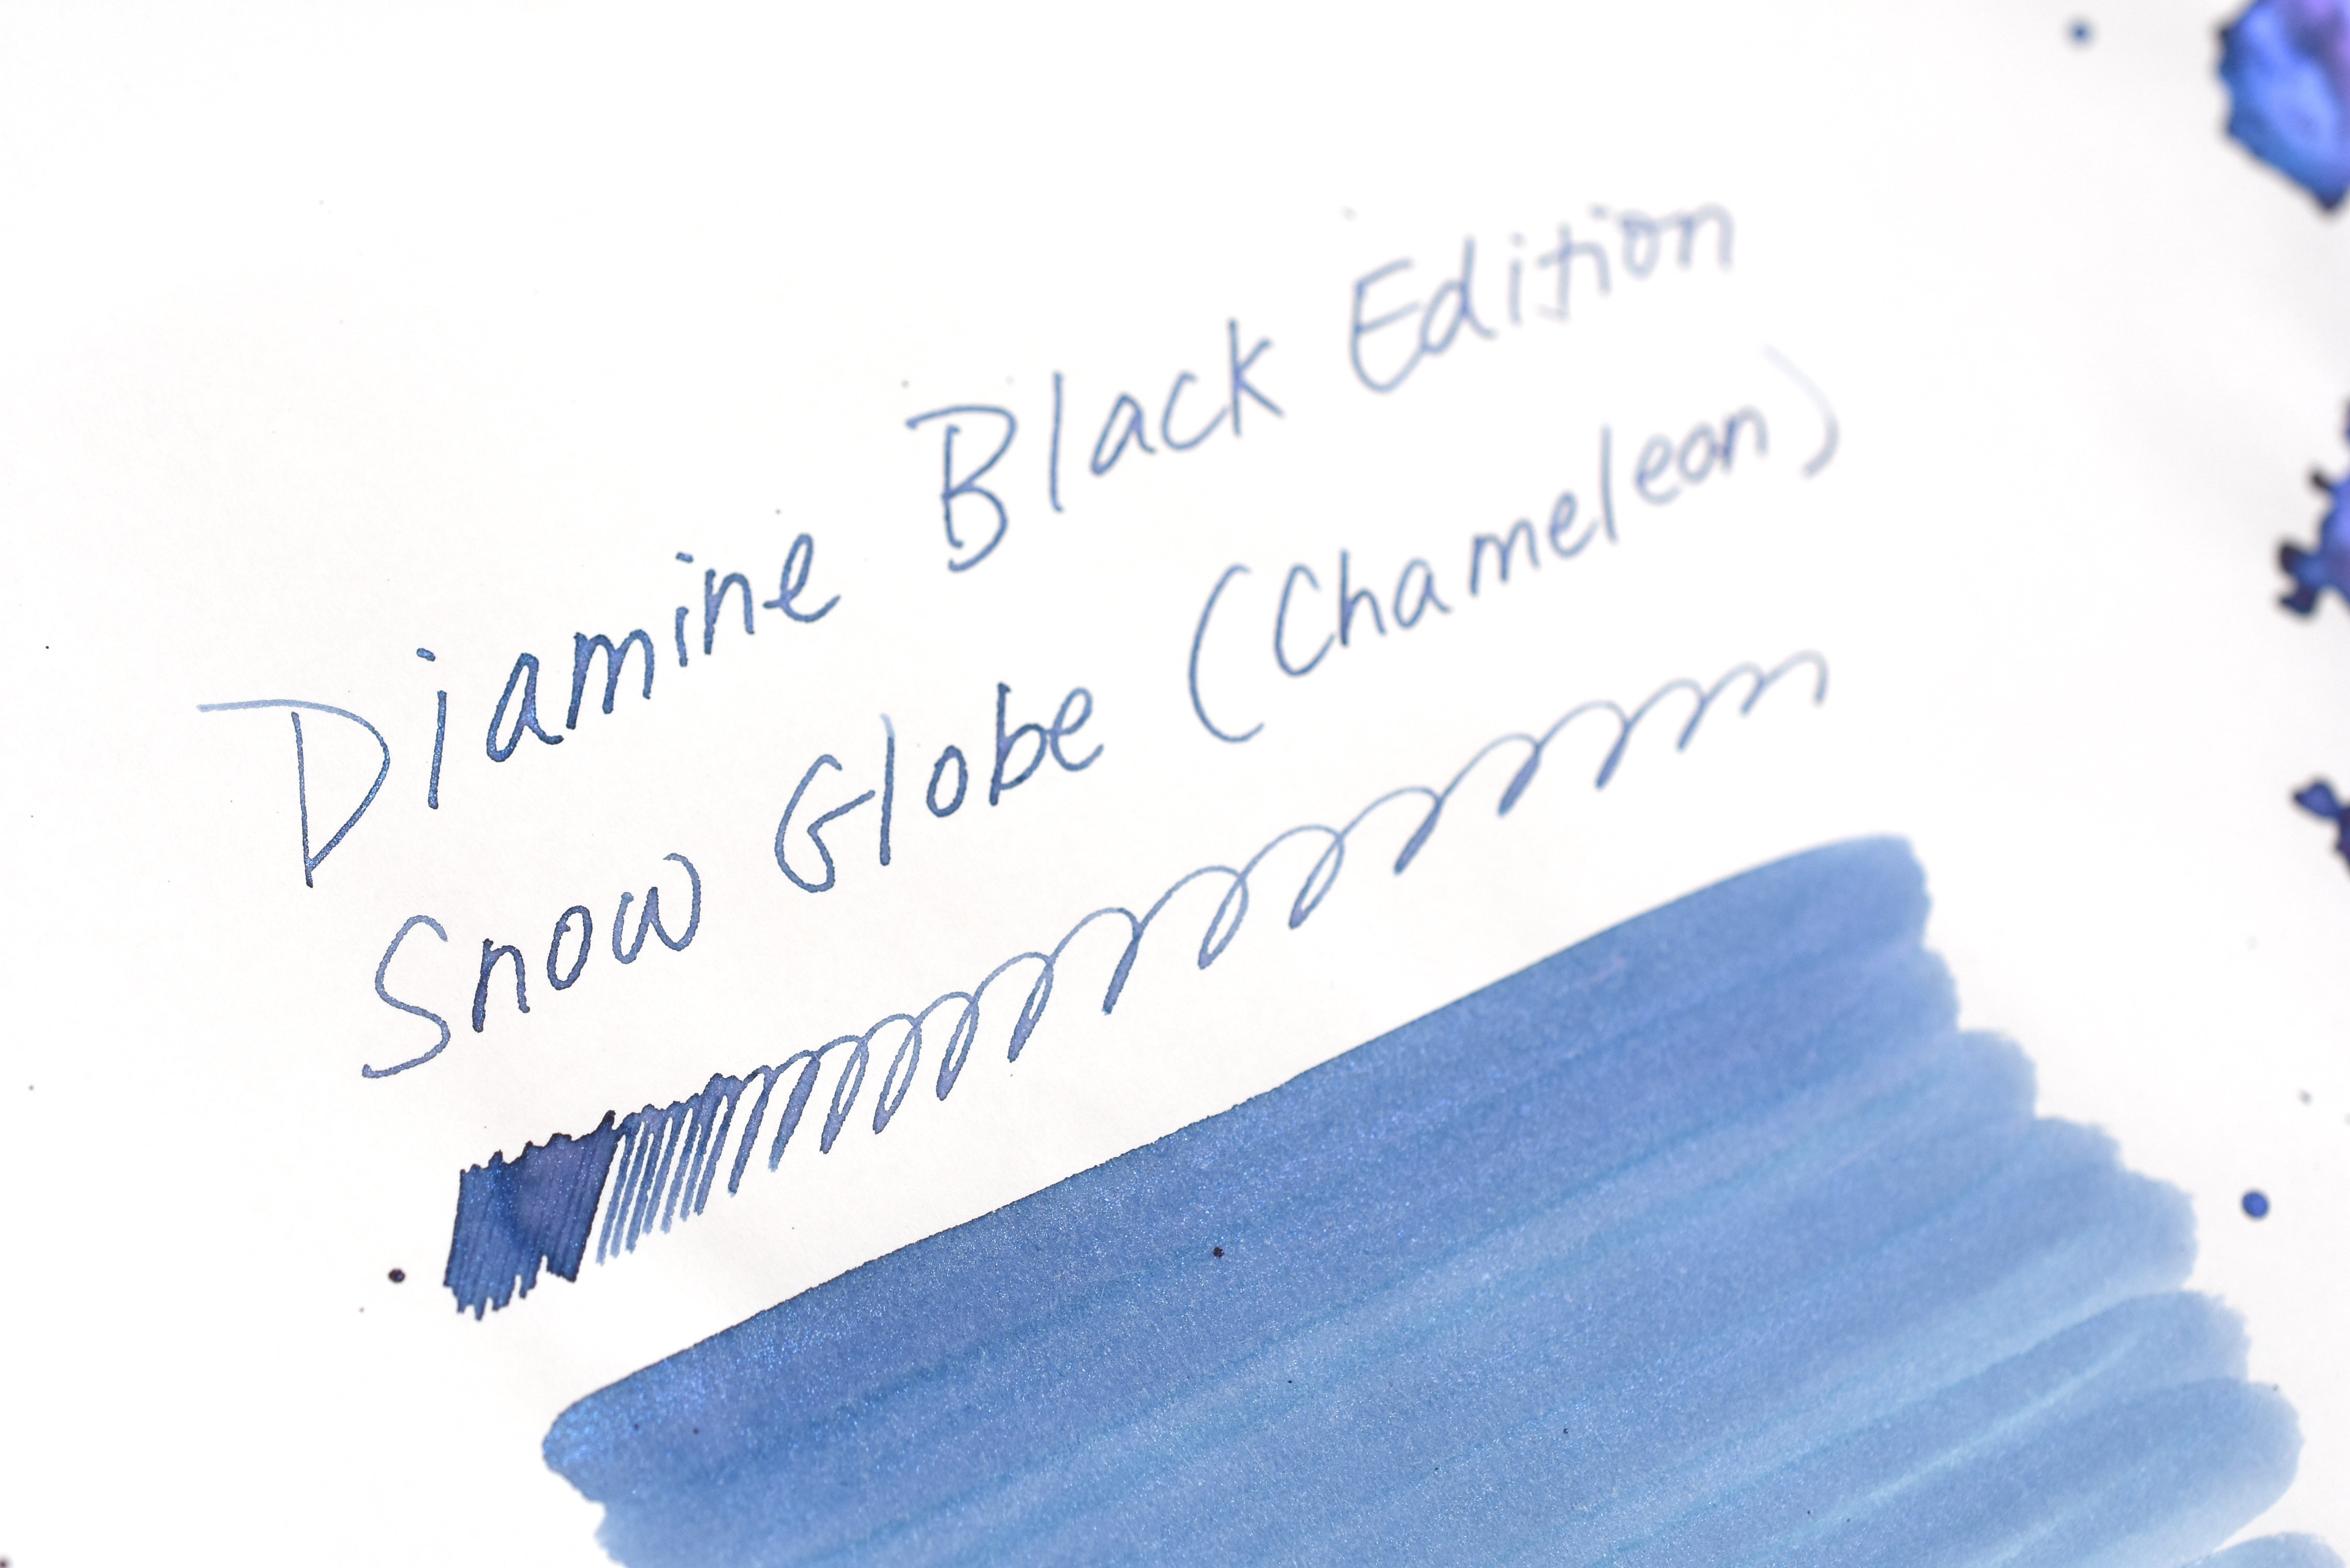 Diamine Black Edition
Snow Globe (Chameleon)